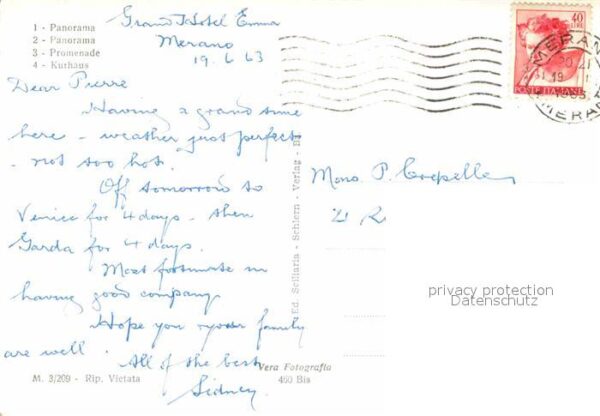 1 - Panorama
2 - Panorama
3 - Promenade
4 - Kurhaus
Grand Hotel Emma
Merano
19.6.63
Dear Pierre
Having a grand time
here - weather just perfect
- not too hot.
Off tomorrow to
Venice for 4 days - then
Garda for 4 days.
Most fortunate in
having good company
Hope you & your family
are well. All of the best
Sidney
M. 3/209 - Rip. Vietata
Vera Fotografia
460 Bis
Ed. Sciliaria - Schlern - Verlag -
40
LIRE
POSTE ITALIANE
MERANO
19
MERAN
Mons. P. Crepelle
privacy protection
Datenschutz